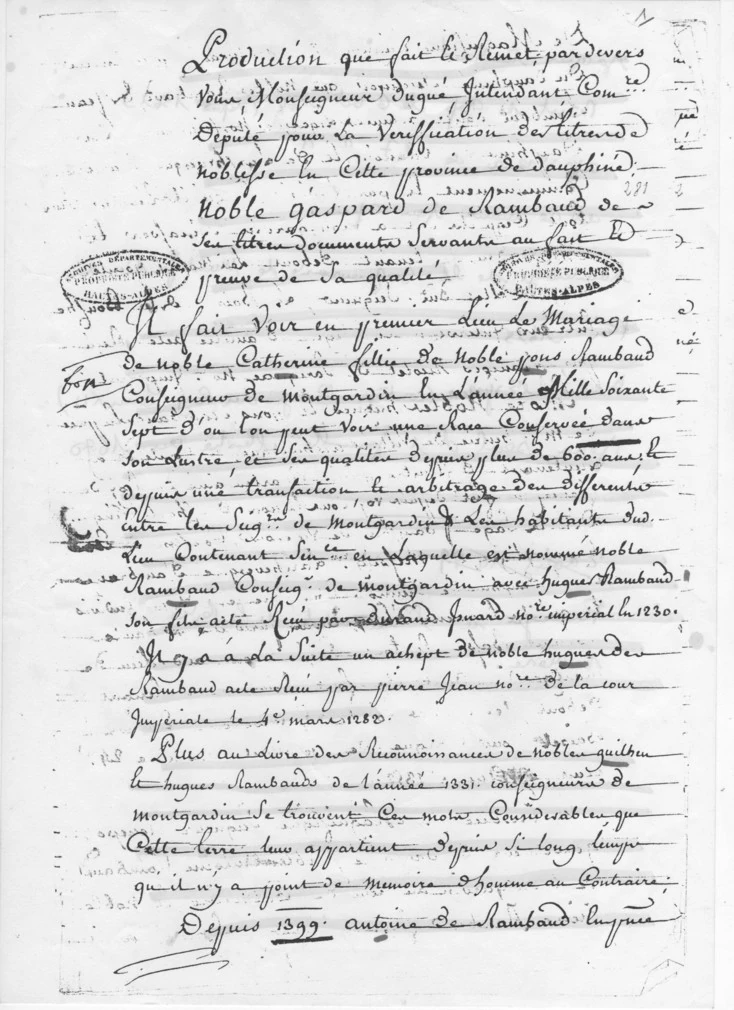 1
Production que fait et Remet pardevers
Vous Monseigneur Dugué Intendant Com.re
Député pour La Veriffication des titres de
noblesse En Cette province de dauphiné
281
noble gaspard de Rambaud de
Ses titres documents Servants au fait et
preuve de Sa qualité
ARCHIVES DÉPARTEMENTALES
PROPRIÉTÉ PUBLIQUE
HAUTES-ALPES
PROPRIÉTÉ PUBLIQUE
HAUTES-ALPES
Il fait Voir en premier Lieu Le Mariage
de noble Catherine fillie de Noble pons Rambaud
bon
Conseigneur de Montgardin En L'année Mille Soixante
Sept d'ou lon peut Voir une Race Conservée dans
son Lustre et Ses qualites depuis plus de 600. ans. et
depuis une transaction et arbitrage des differents
Entre les Seig.rs de Montgardin & Les habitants dud.
Lieu Contenant Sin.ce en Laquelle est nommé noble
Rambaud Conseig.r de Montgardin avec hugues Rambaud
son fils acte Receu par durand no.re imperial En 1230.
Il y a á La Suite un achept de noble hugues des
Rambaud acte Receu par pierre Jean no.re de la cour
Imperiale le 4.e mars 1282.
Plus au Livre des Reconnoissances de nobles guilhen
Et hugues Rambauds de l'année 1331. conseigneurs de
montgardin Se trouvent Ces mots Considerables que
Cette terre leur appartient depuis Si long temps
qu'il n'y a point de memoire d'homme au Contraire.
Depuis 1399. antoine de Rambaud